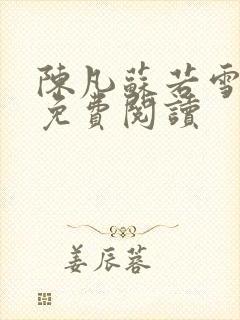 陳凡蘇若雪
免費閱讀
姜辰蓉